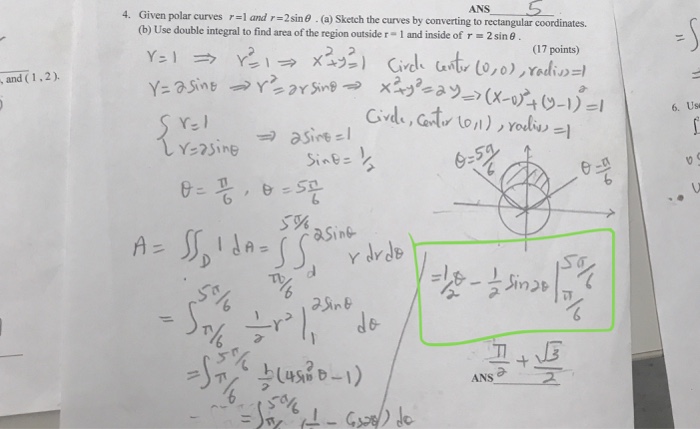 ANS 5
4. Given polar curves r=1 and r=2sinθ. (a) Sketch the curves by converting to rectangular coordinates.
(b) Use double integral to find area of the region outside r=1 and inside of r=2sinθ.
(17 points)
and (1,2).
r=1 ⇒ r²=1 ⇒ x²+y²=1 Circle center (0,0), radius=1
r=2sinθ ⇒ r²=2rsinθ ⇒ x²+y²=2y ⇒ (x-0)²+(y-1)²=1
Circle, Center (0,1), radius=1
{ r=1
r=2sinθ ⇒ 2sinθ=1
sinθ=1/2
θ=π/6, θ=5π/6
θ=5π/6
θ=π/6
6. Us
A = ∬_D 1 dA = ∫_{π/6}^{5π/6} ∫_1^{2sinθ} r dr dθ
= ∫_{π/6}^{5π/6} 1/2 r² |_1^{2sinθ} dθ
= ∫_{π/6}^{5π/6} 1/2 (4sin²θ-1)
= ∫_{π/6}^{5π/6} (1/2 - cos2θ) dθ
= 1/2 θ - 1/2 sin2θ |_{π/6}^{5π/6}
ANS π/2 + √3/2